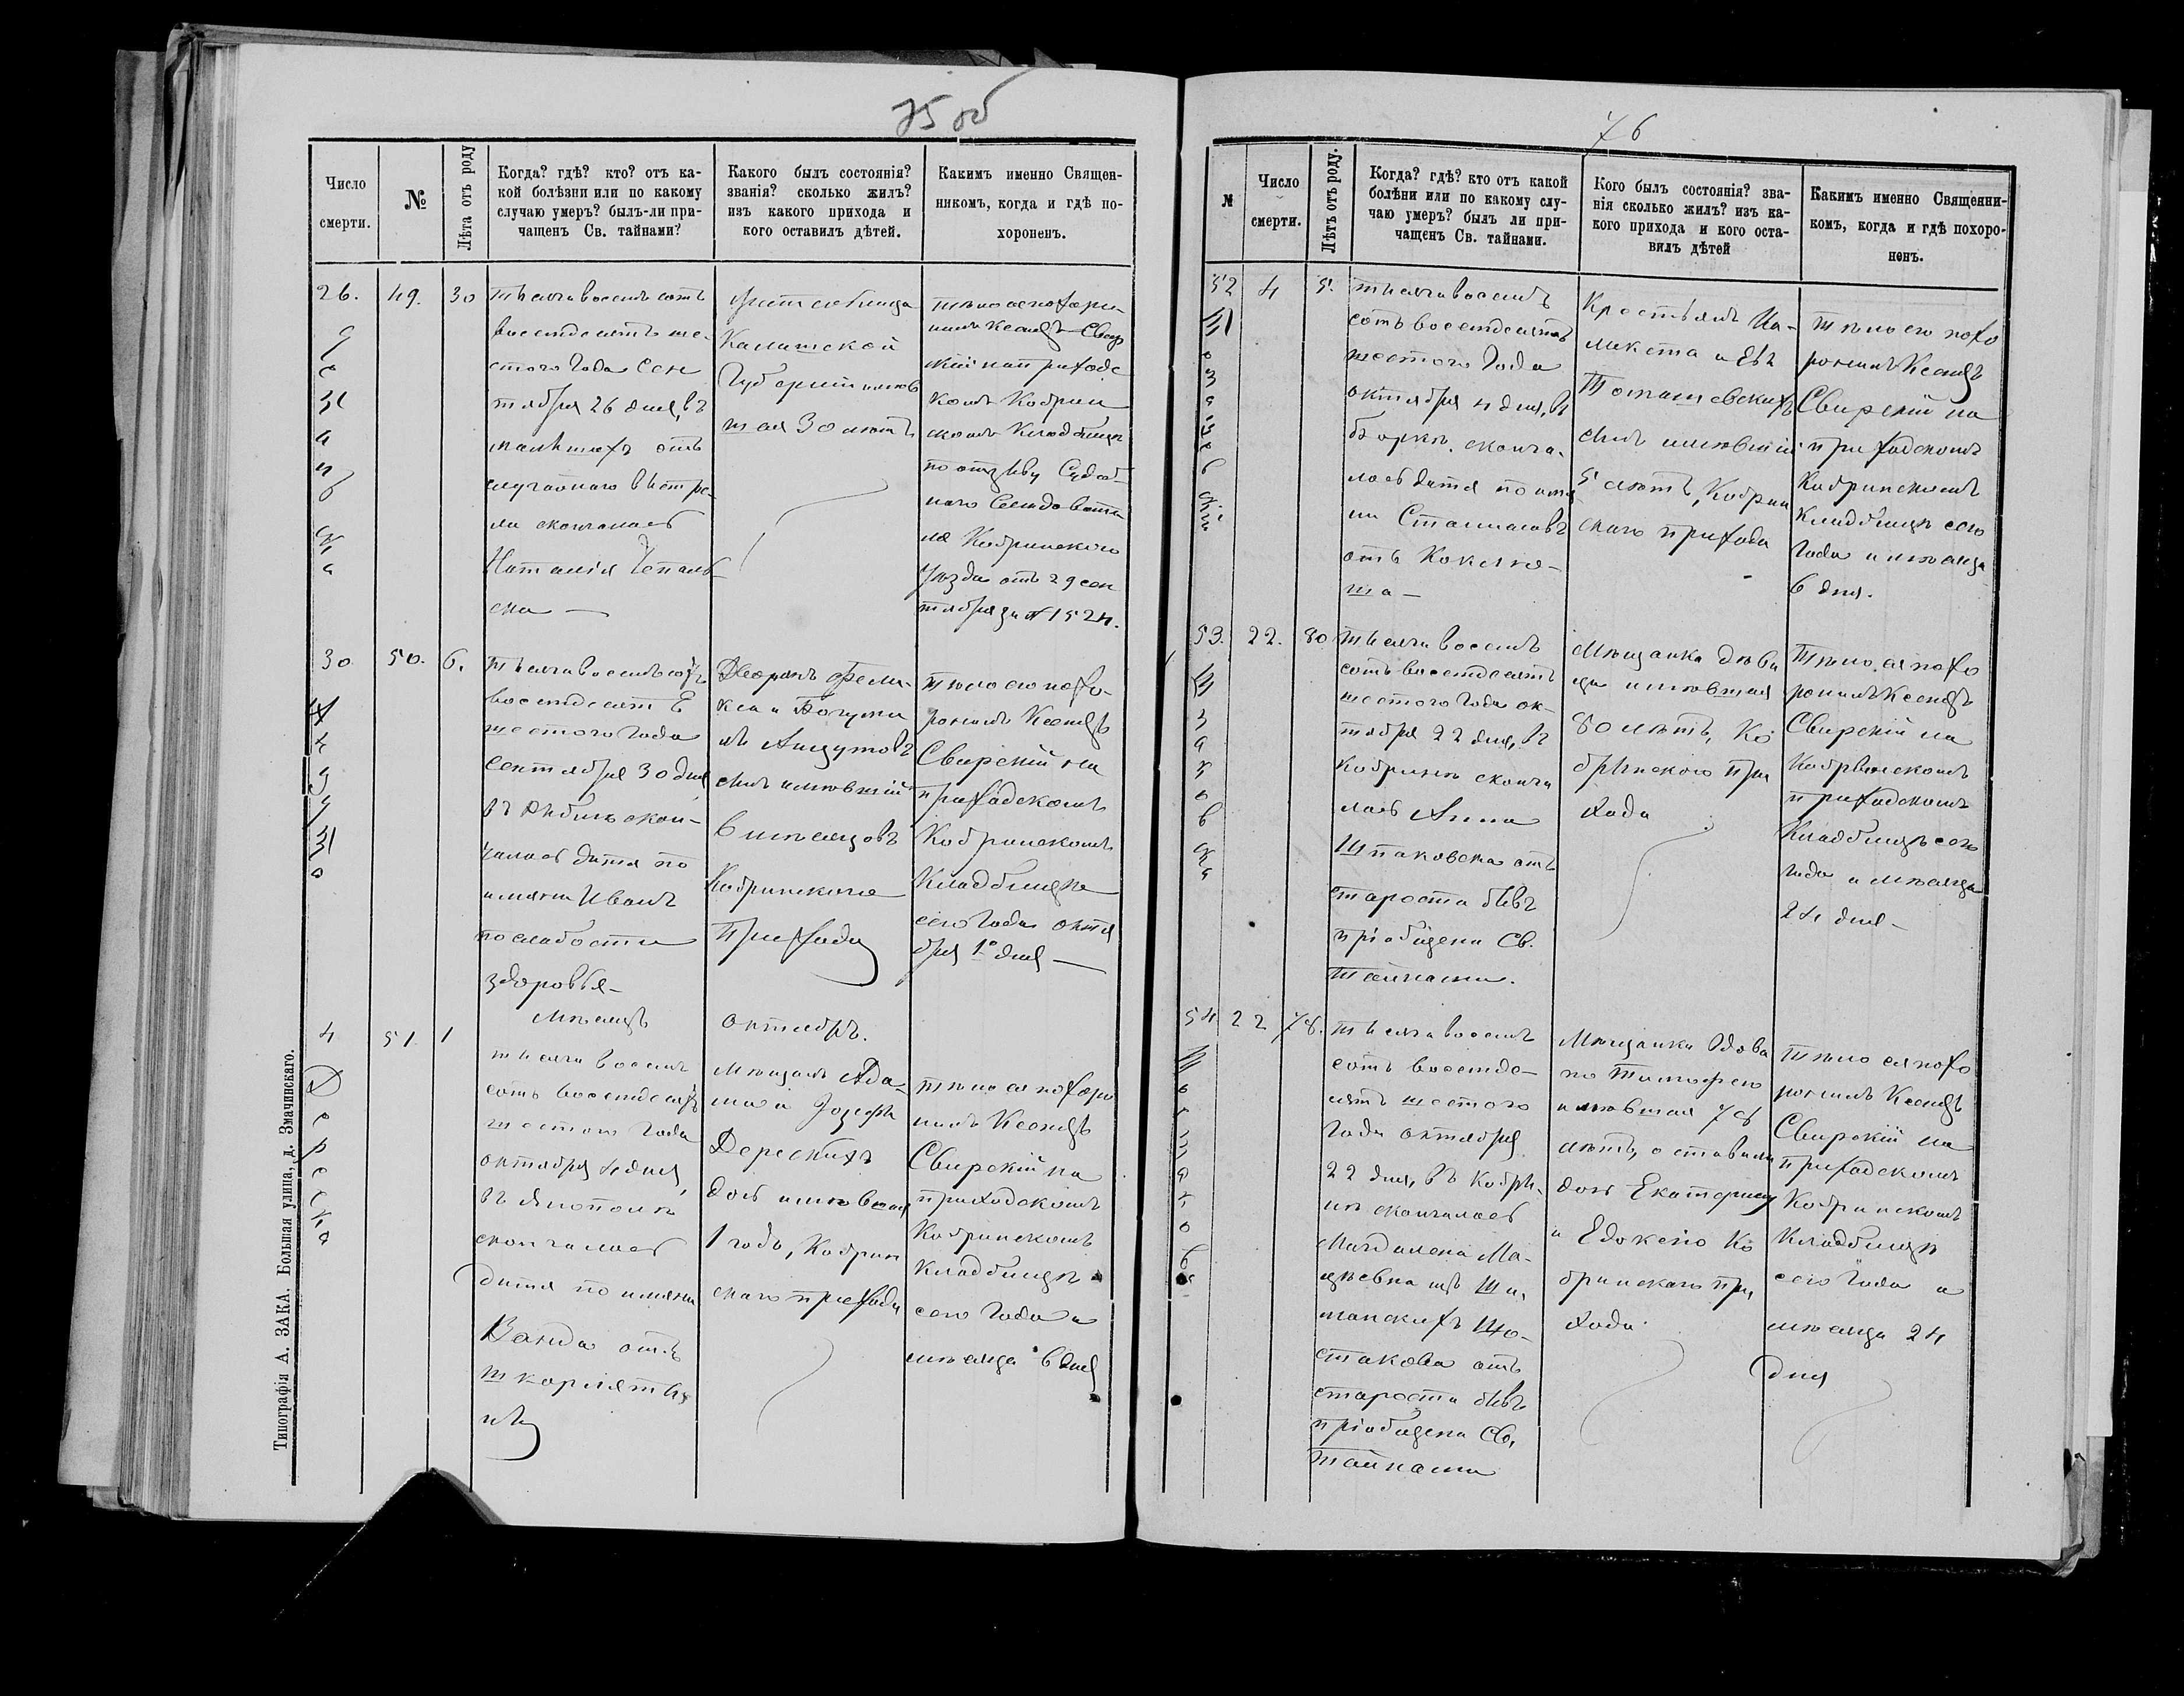 75 об
Число
смерти.
№
Лѣта отъ роду
Когда? гдѣ? кто? отъ ка-
кой болѣзни или по какому
случаю умеръ? былъ-ли при-
чащенъ Св. тайнами?
Какого былъ состоянія?
званія? сколько жилъ?
изъ какого прихода и
кого оставилъ дѣтей.
Какимъ именно Священ-
никомъ, когда и гдѣ по-
хороненъ.
26.
49.
30
тысяча восемь сотъ
восемдесятъ ше-
стого Года Сен
тября 26 дня, въ
отъ
случайнаго выстре-
ла скончалась
Наталія
ска —
Калишской
Губерніи имѣв
шая 30 лѣтъ
тѣло ея похоро
нилъ Ксендзъ Свир
скій на приходс
комъ Кобрин
скомъ Кладбищѣ
по отзыву Судеб
наго Слѣдовате
ля Кобринскаго
Уѣзда отъ 29 сен
тября за № 1524.
30
50.
6.
Тысяча восемь сотъ
восемдесятъ
шестого Года
Сентября 30 дня
въ скон-
чалось дитя по
имяни Иванъ
по слабости
здоровья —
Дворянъ Фели-
кса и
сынъ имѣвшій
6 мѣсяцовъ
Кобринскаго
Прихода
Тѣло его похо-
ронилъ Ксендзъ
Свирскій на
приходскомъ
Кобринскомъ
Кладбищѣ
сего Года октя
бря 1º дня —
Мѣсяцъ
Октябрь.
4
51
1
Дереска
тысяча восемь
сотъ восемдесятъ
шестого Года
октября 4 дня,
въ
скончалось
дитя по имяни
Ванда отъ
шкорлятi
ны
Мѣщанъ Ада-
ма и Іозефы
Дерескихъ
дочь имѣвшая
1 годъ, Кобрин
скаго прихода
тѣло ея похоро
нилъ Ксендзъ
Свирскій на
приходскомъ
Кобринскомъ
Кладбищѣ
сего Года и
мѣсяца 6 дня
Типографія А. ЗАКА. Большая улица, д. Змачинскаго.
76
№
Число
смерти.
Лѣтъ отъ роду.
Когда? гдѣ? кто отъ какой
болѣни или по какому слу-
чаю умеръ? былъ ли при-
чащенъ Св. тайнами.
Кого былъ состоянія? зва-
нія сколько жилъ? изъ ка-
кого прихода и кого оста-
вилъ дѣтей
Какимъ именно Священни-
комъ, когда и гдѣ похоро-
ненъ.
52
4
5.
тысяча восемь
сотъ восемдесятъ
шестого Года
октября 4 дня, въ
сконча-
лось дитя по имя
ни Станиславъ
отъ Коклю-
ша —
Крестьянъ Ка-
ликста и Евы
Томашевскихъ
сынъ имѣвшій
5 лѣтъ, Кобрин
скаго прихода
тѣло его похо
ронилъ Ксендзъ
Свирскій на
приходскомъ
Кобринскомъ
Кладбищѣ сего
Года и мѣсяца
6 дня.
53.
22.
80
Шпаковска
тысяча восемь
сотъ восемдесятъ
шестого Года ок-
тября 22 дня, въ
Кобринѣ сконча
лась Анна
Шпаковска отъ
старости бывъ
пріобщена Св.
Тайнами.
Мѣщанка дѣви
ца имѣвшая
80 лѣтъ, Ко
бринского при
хода
Тѣло ея похо
ронилъ Ксендзъ
Свирскій на
Кобринскомъ
приходскомъ
Кладбищѣ сего
Года и мѣсяца
24 дня —
54
22
78.
Тысяча восемь
сотъ восемде-
сятъ шестого
Года октября
22 дня, въ Кобри-
нѣ скончалась
Магдалена Ма-
цѣевна изъ Ши-
манскихъ Шо-
стакова отъ
старости бывъ
пріобщена Св.
тайнами
Мѣщанка Вдова
по Тимофею
имѣвшая 78
лѣтъ, оставила
доч Екатерину
и Едокею Ко
бринскаго при
хода
тѣло ея похо
ронилъ Ксендзъ
Свирскій на
приходскомъ
Кобринскомъ
Кладбищѣ
сего Года и
мѣсяца 24
дня